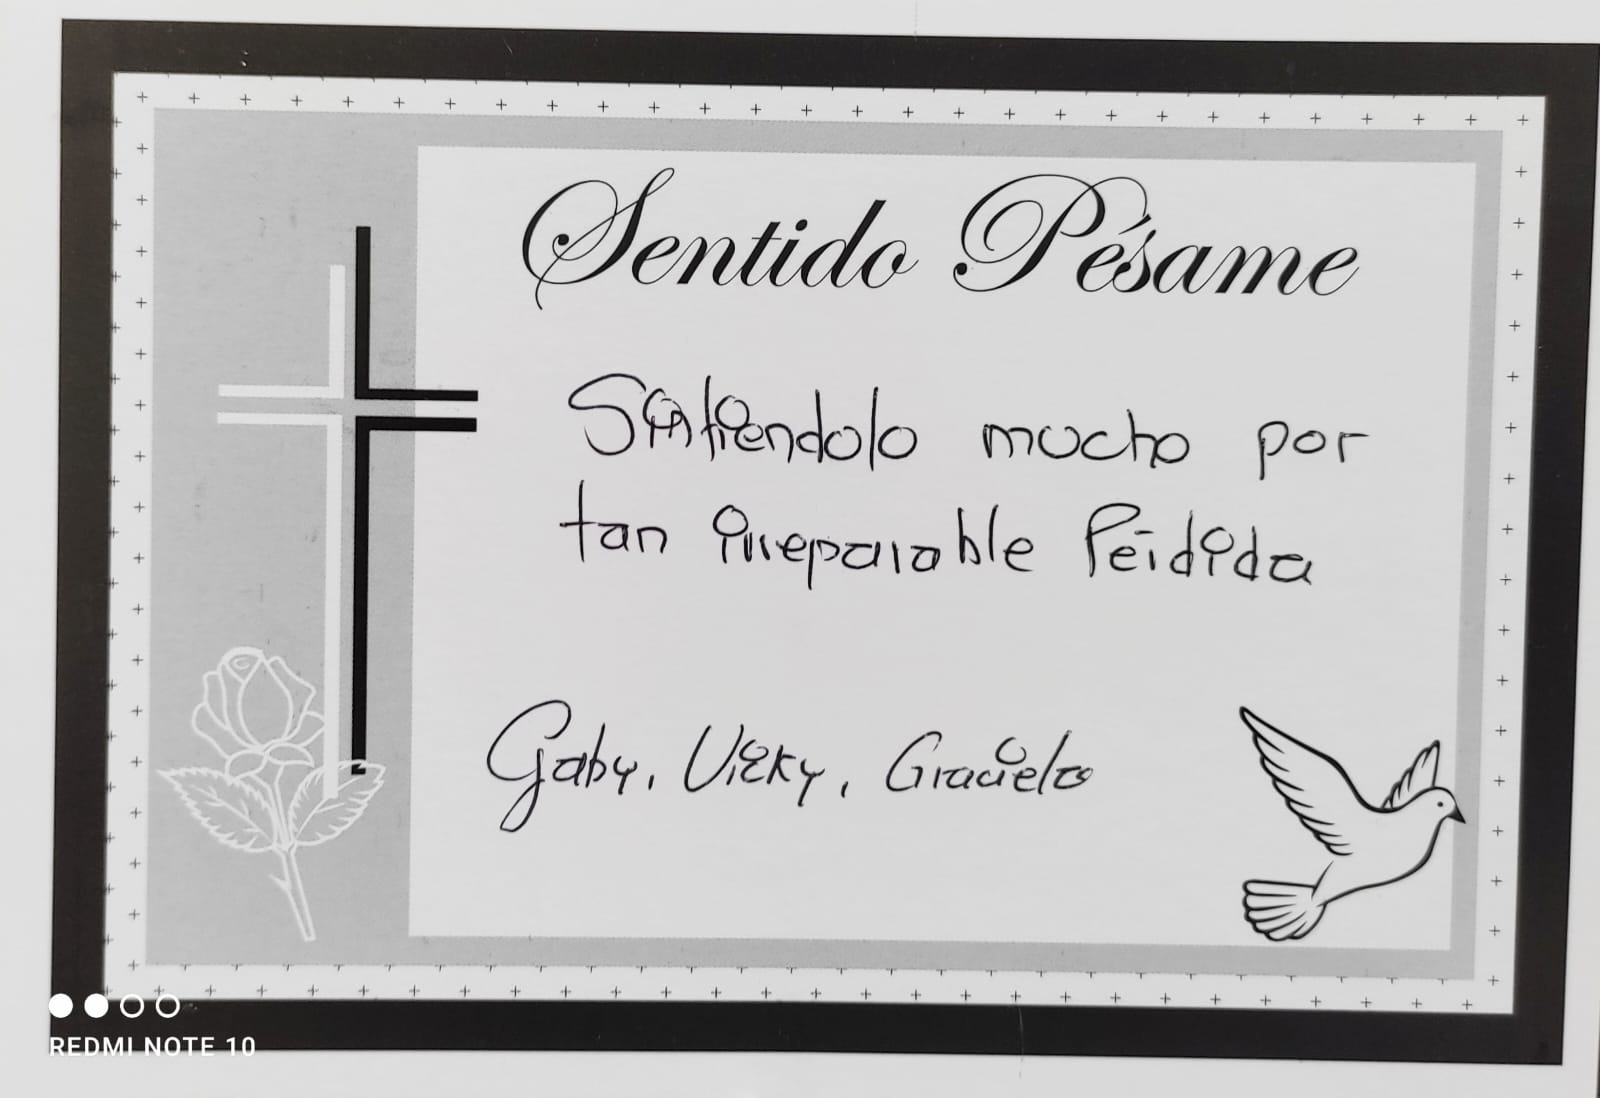 Sentido Pésame
Sintiéndolo mucho por
tan irreparable Pérdida
Gaby, Vicky, Graciela
REDMI NOTE 10